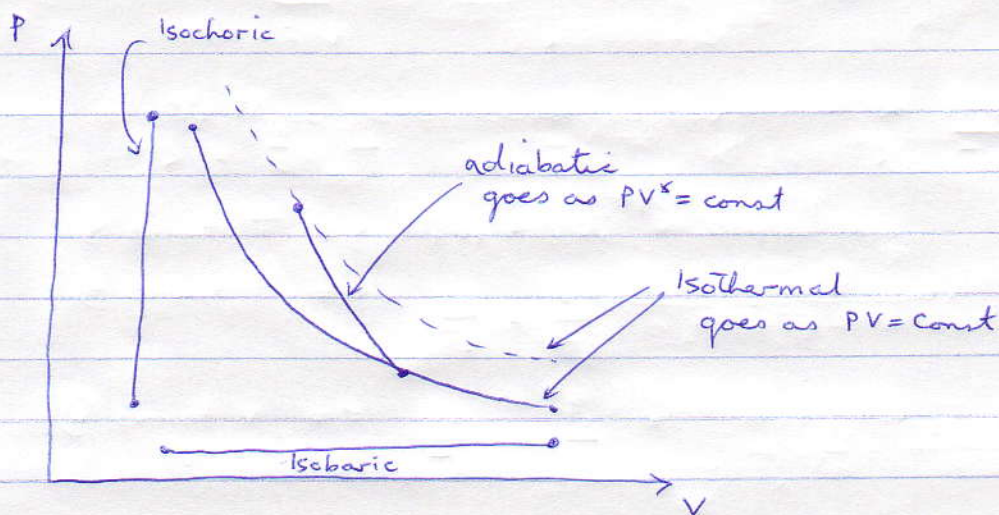 P
Isochoric
adiabatic
goes as PVᵞ = const
Isothermal
goes as PV = Const
Isobaric
V